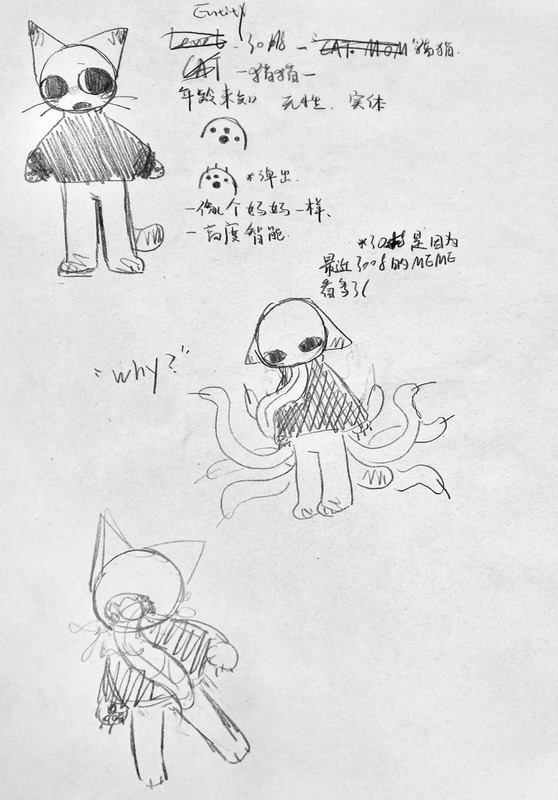 Entity
Level - 3008 - "CAT MOM" 猫猫.
CAT - 猫猫 -
年龄未知 无性. 实体
*弹出.
- 像个妈妈一样.
- 高度智能.
*3008是因为
最近3008的MEME
看多了(
"why?"